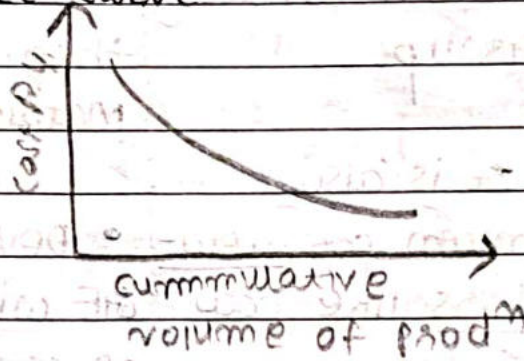 cost P.U.
cummulative
volume of prodⁿ